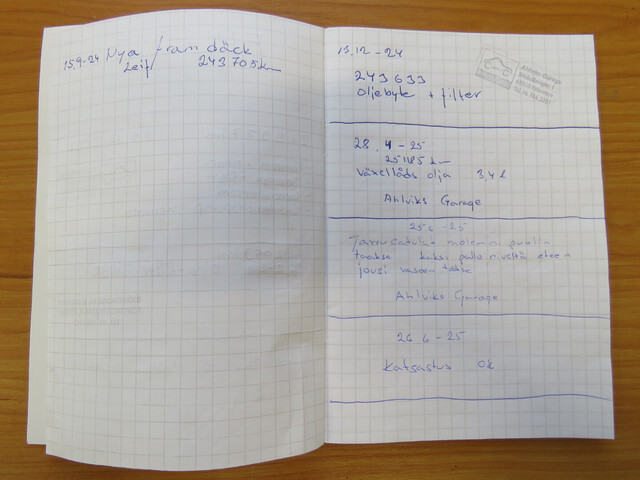 15.9-24 Nya fram däck
Leif 243705km
13.12-24
243633
oljebyte + filter
28.4-25
251185 km
växellåds olja 3,4 l
Ahlviks Garage
25 6 -25
molemmi puolla
taakse kaksi pallo niveltä eteen
jousi vaseen taakse
Ahlviks Garage
26 6-25
Katsastus ok